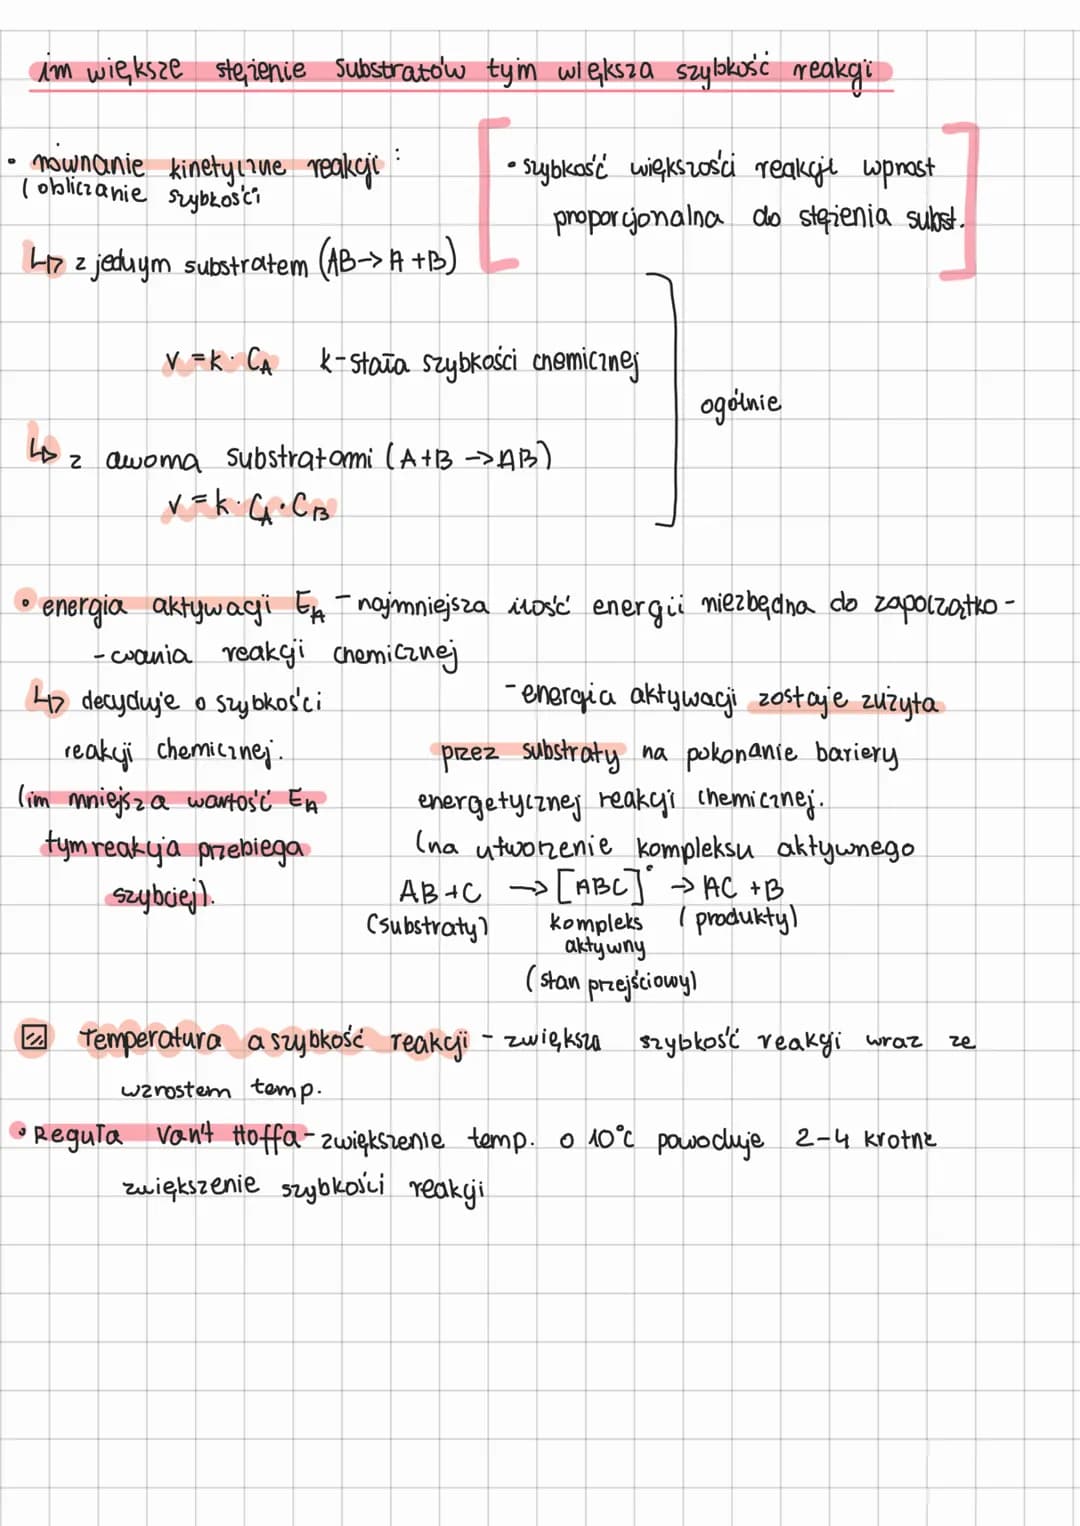 im większe stężenie substratów tym większa szybkość reakcji
• równanie kinetyczne reakcji :
(obliczanie szybkości
• szybkość większości reakcji wprost
proporcjonalna do stężenia subst.
↳ z jednym substratem (AB→ A + B)
v = k · CA   k - stała szybkości chemicznej
ogólnie
↳ z dwoma substratami (A+B → AB)
v = k · CA · CB
• energia aktywacji EA - najmniejsza ilość energii niezbędna do zapoczątko-
-wania reakcji chemicznej
↳ decyduje o szybkości
reakcji chemicznej.
(im mniejsza wartość EA
tym reakcja przebiega
szybciej).
- energia aktywacji zostaje zużyta
przez substraty na pokonanie bariery
energetycznej reakcji chemicznej.
(na utworzenie kompleksu aktywnego
AB + C → [ABC]° → AC + B
(substraty) kompleks (produkty)
aktywny
(stan przejściowy)
Temperatura a szybkość reakcji - zwiększa szybkość reakcji wraz ze
wzrostem temp.
• Reguła Van't Hoffa - zwiększenie temp. o 10°C powoduje 2-4 krotne
zwiększenie szybkości reakcji